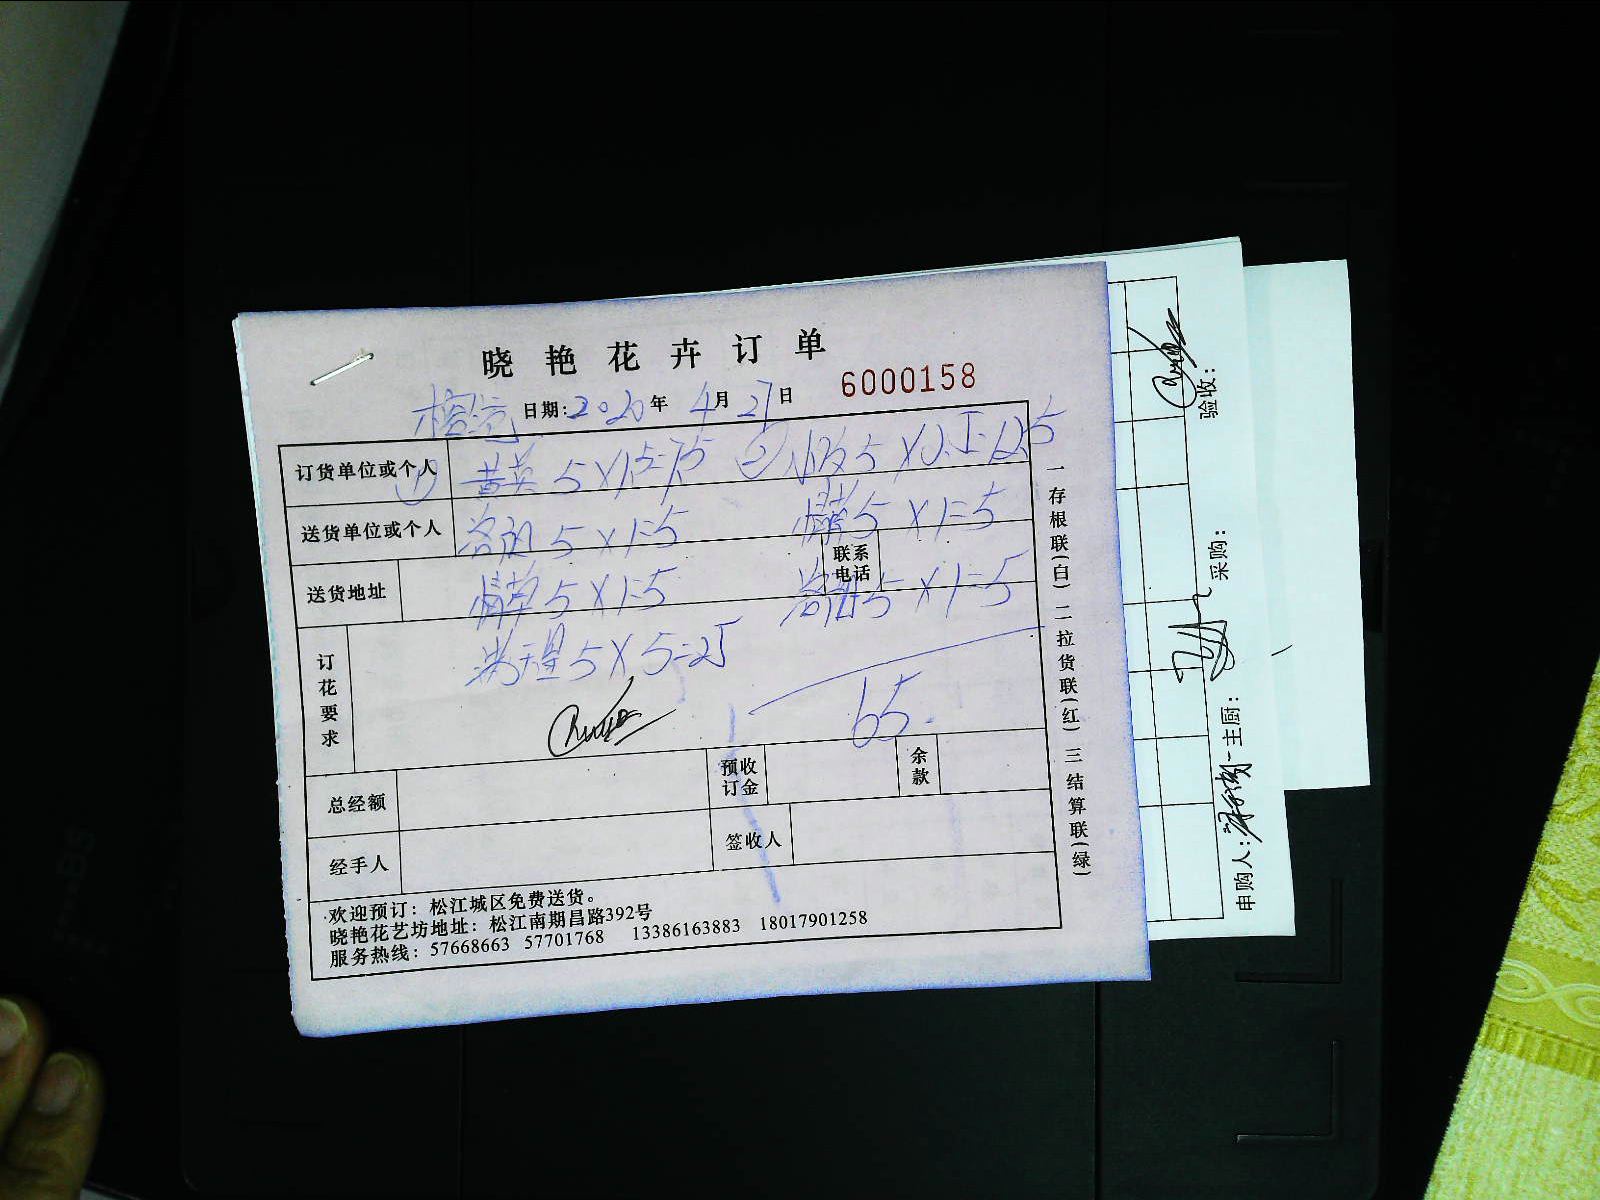 晓艳花卉订单
日期:2020年4月27日
6000158
订货单位或个人 ① 黄英 5×1.5=7.5 ② 小玫 5×2.5=12.5
送货单位或个人 5×1=5 情草 5×1=5
送货地址 情草 5×1=5 联系电话 5×1=5
订花要求 满天星 5×5=25
65.
总经额 预收订金 余款
经手人 签收人
欢迎预订：松江城区免费送货。
晓艳花艺坊地址：松江南期昌路392号
服务热线：57668663 57701768 13386163883 18017901258
一存根联(白) 二拉货联(红) 三结算联(绿)
申购人: 主厨: 采购: 验收: